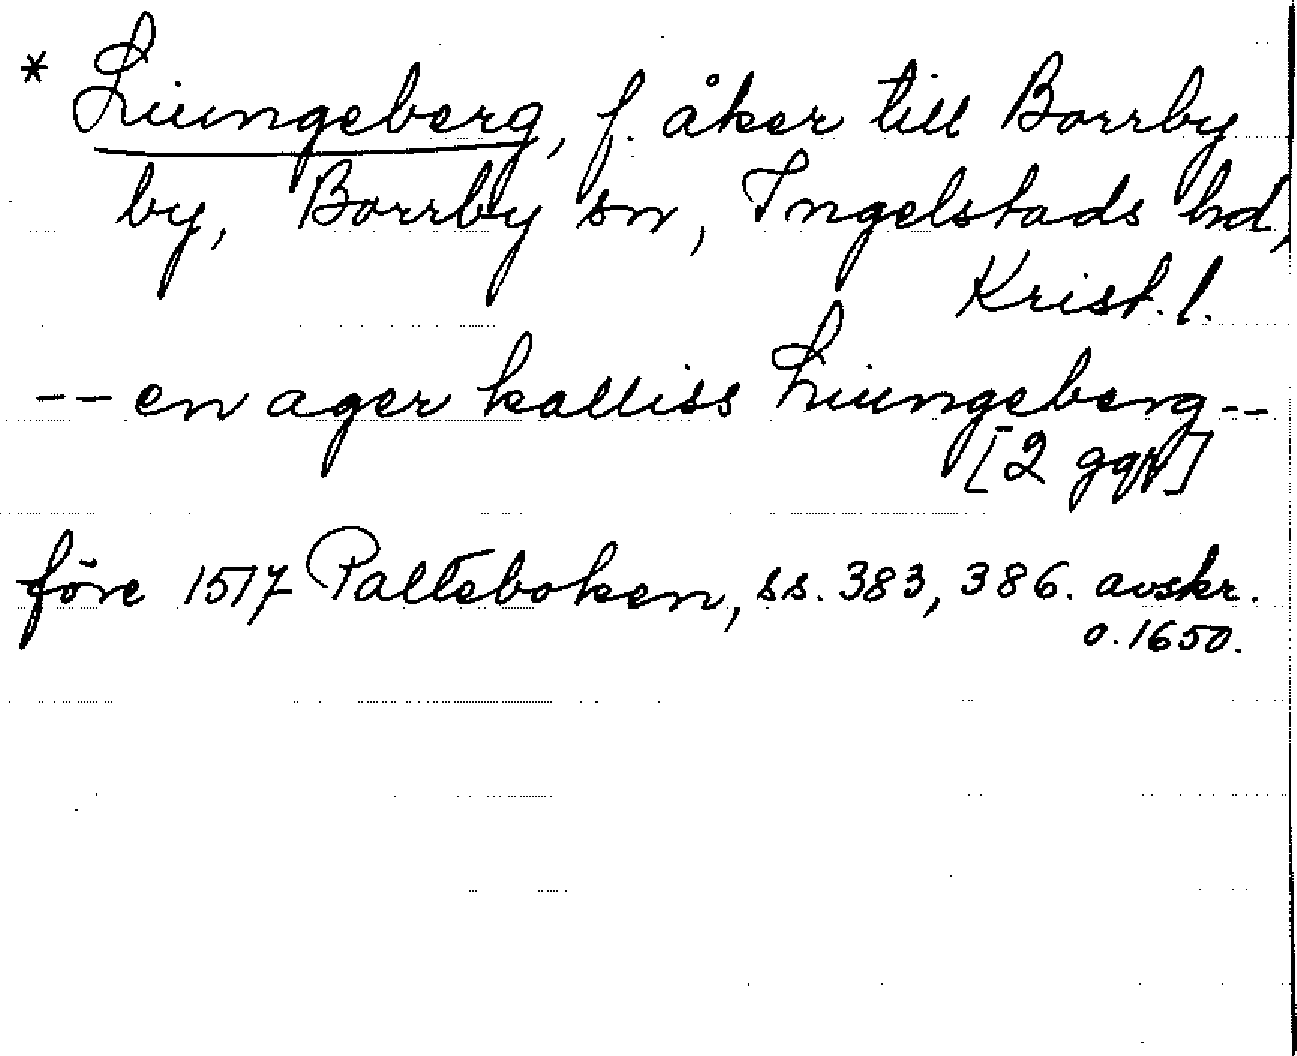 * Liungeberg, f. åker till Borrby
by, Borrby sn, Ingelstads hd,
Krist. l.
-- en ager kalliss Liungeberg --
[2 ggr]
före 1517 Palteboken, ss. 383, 386. avskr.
o. 1650.